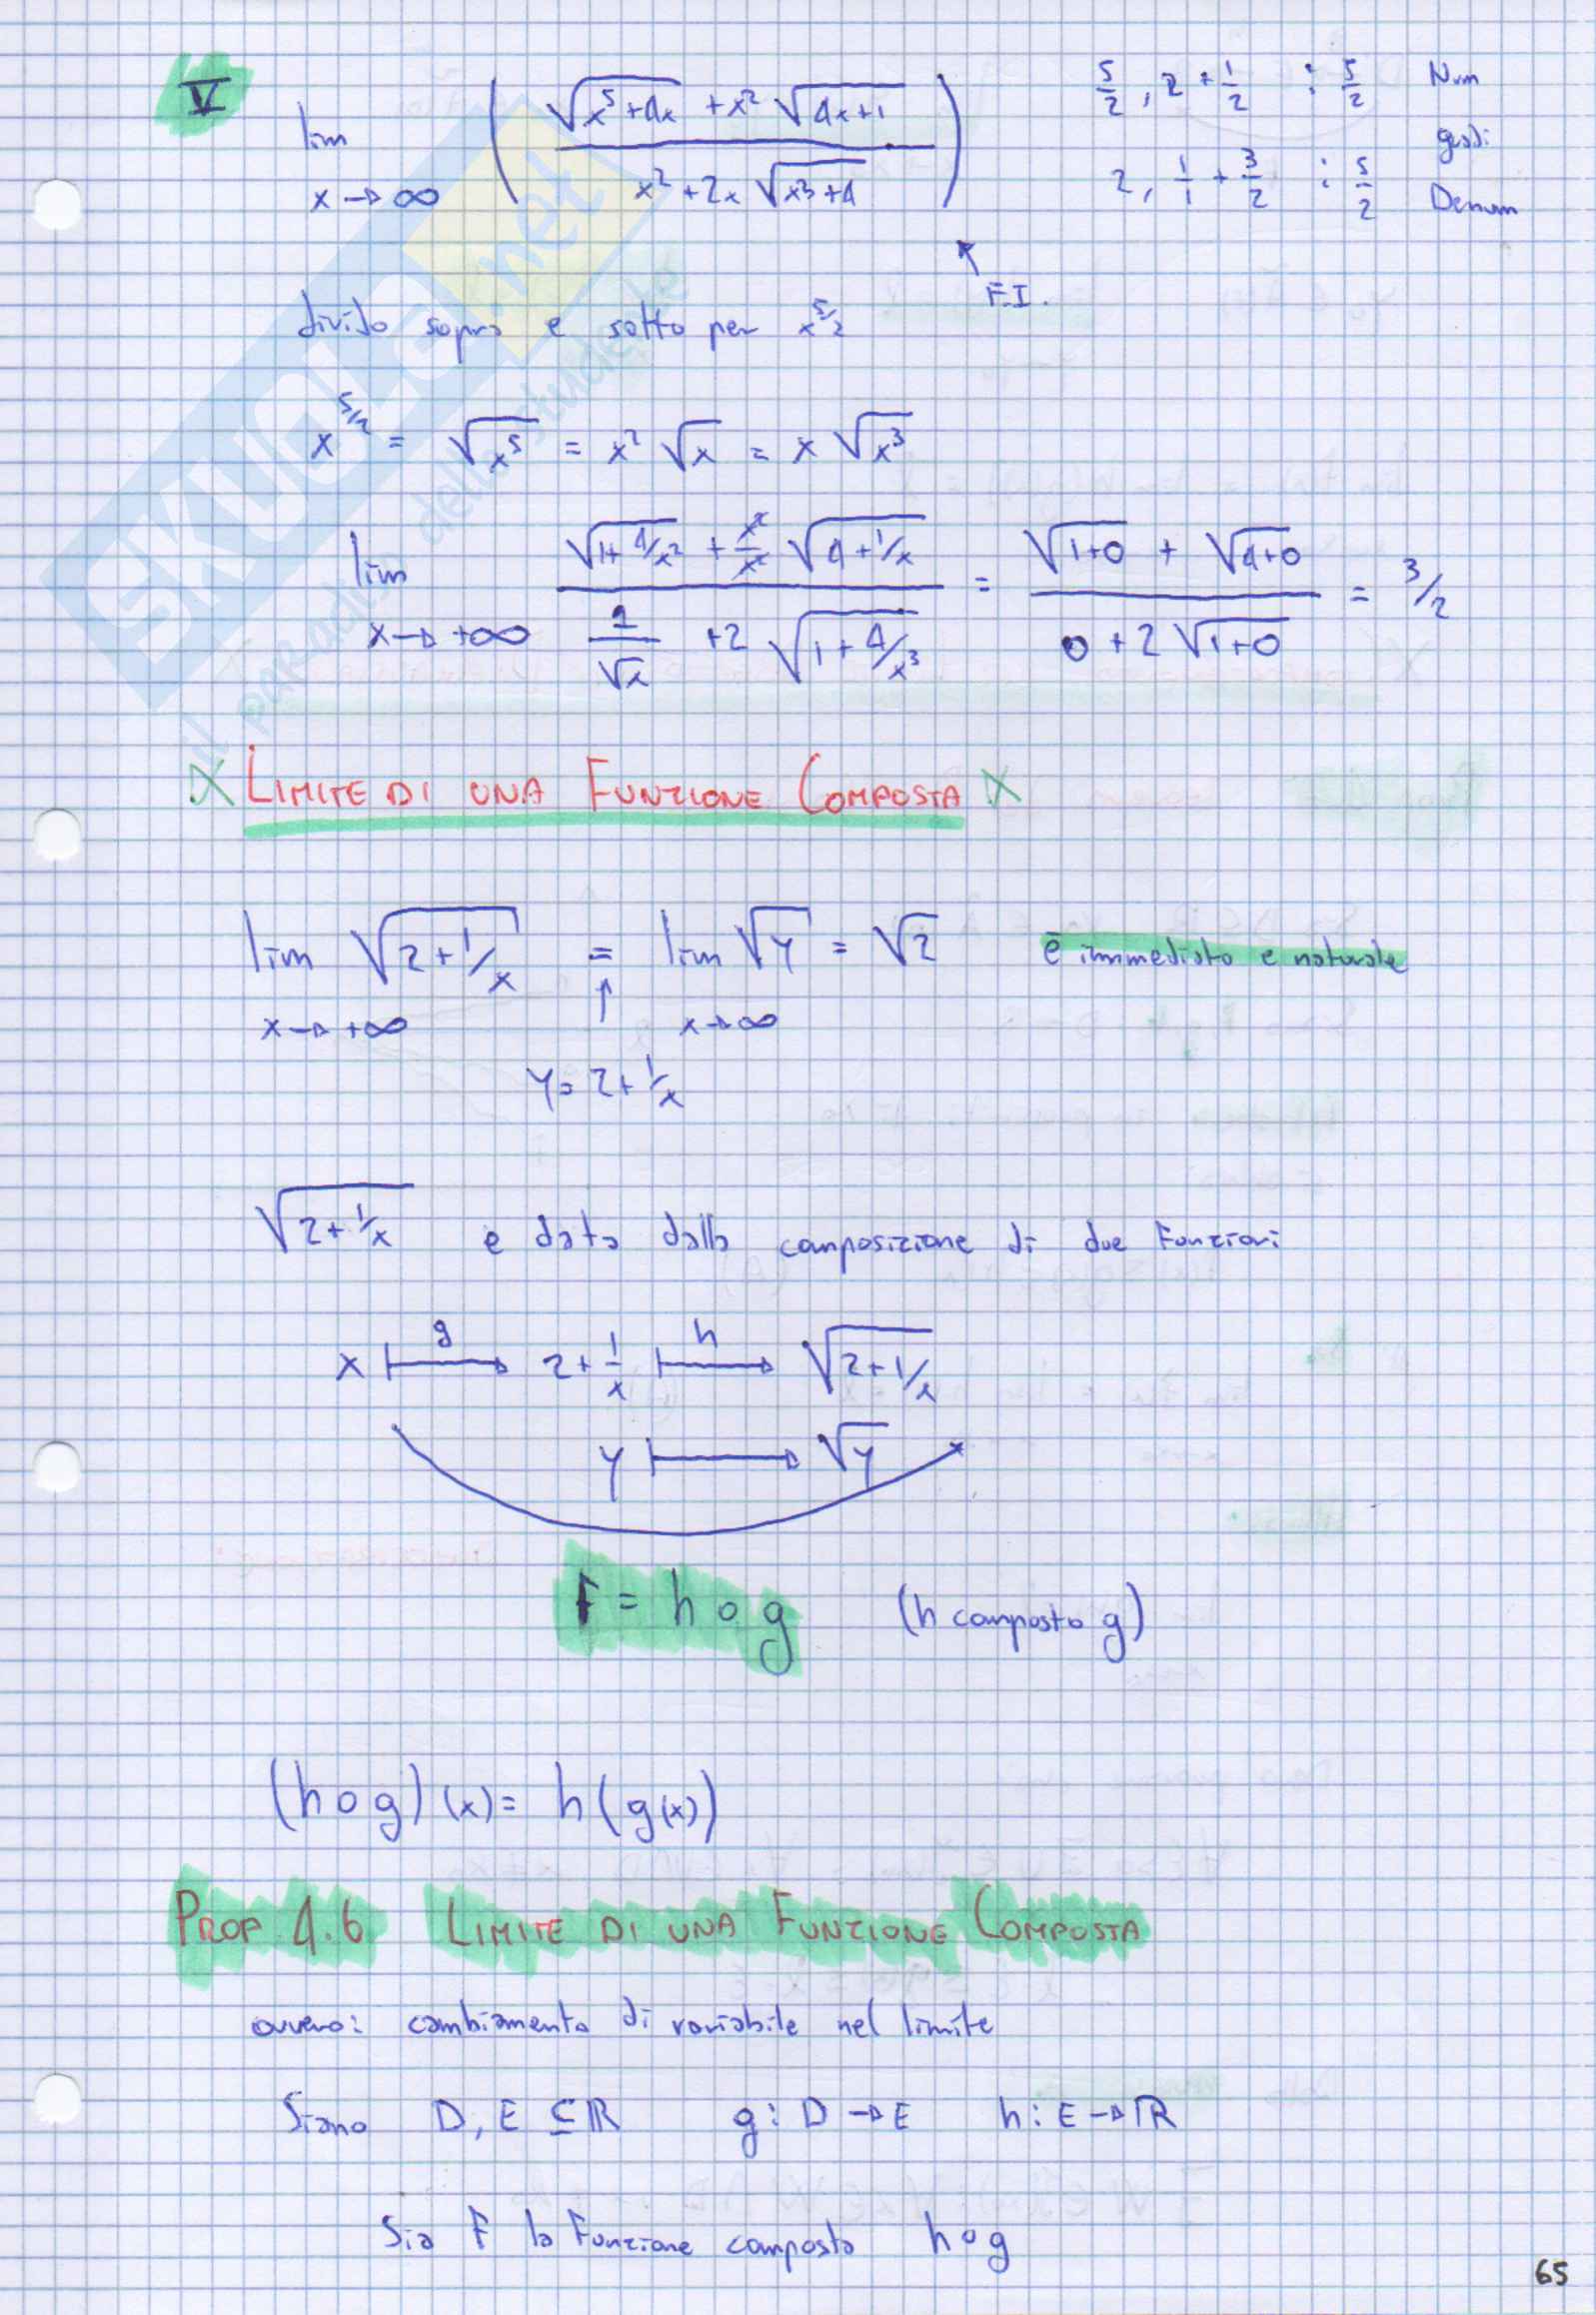 V lim x→∞ ( (√(x⁵+4x) + x² √(4x+1)) / (x²+2x √(x³+4)) ) 5/2 , 2 + 1/2 : 5/2 Num
gradi
2, 1/1 + 3/2 : 5/2 Denum
F.I.
divido sopra e sotto per x^5/2
x^5/2 = √x⁵ = x² √x = x √x³
lim x→+∞ (√(1+4/x²) + x²/x² √(4+1/x)) / (1/√x +2 √(1+4/x³)) = (√(1+0) + √(4+0)) / (0+2√(1+0)) = 3/2
LIMITE DI UNA FUNZIONE COMPOSTA
lim x→+∞ √(2+1/x) = lim x→∞ √y = √2 è immediato e naturale
↑
y= 2+1/x
√(2+1/x) e data dalla composizione di due Funzioni
x ⟼ g 2+1/x ⟼ h √(2+1/x)
y ⟼ √y
F = h o g (h composto g)
(h o g)(x) = h(g(x))
PROP 4.6 LIMITE DI UNA FUNZIONE COMPOSTA
ovvero: cambiamento di variabile nel limite
Siano D, E ⊆ ℝ g: D → E h: E → ℝ
Sia F la Funzione composta h o g
65
SKUOLA.net
il paradiso dello studente